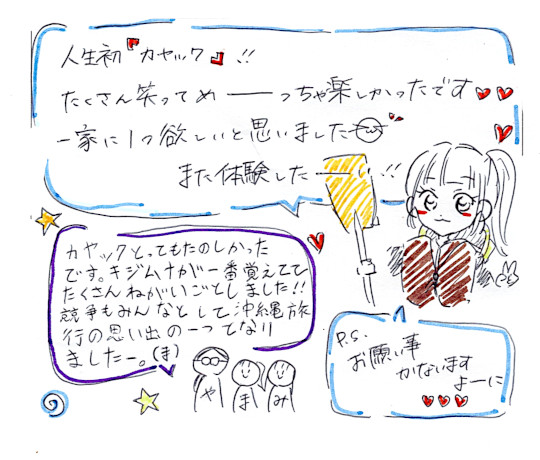 人生初『カヤック』!!
たくさん笑ってめーーっちゃ楽しかったです
一家に1つ欲しいと思いました
また体験したーい!!
カヤックとってもたのしかった
です。キジムナが一番覚えてて
たくさんねがいごとしました!!
競争もみんなとして沖縄旅
行の思い出の一つてなり
ましたー。(ま)
や ま み
P.S.
お願い事
かないます
よーに